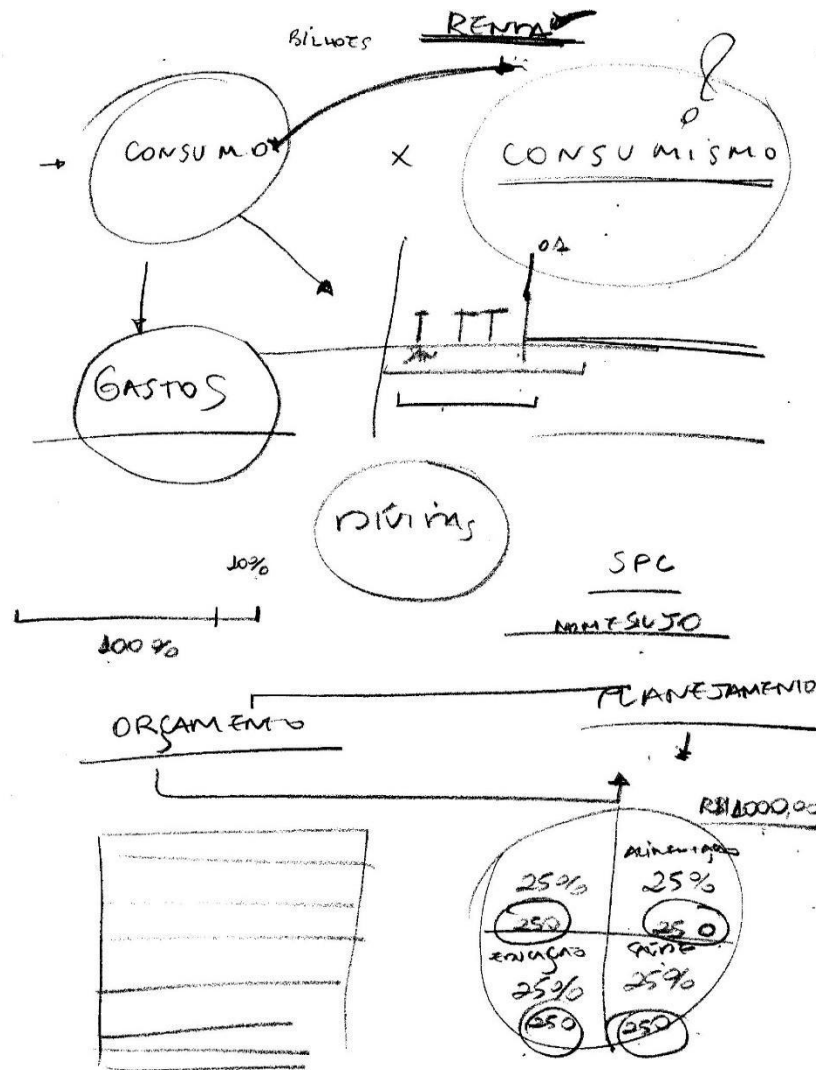 BILHOES RENDA
CONSUMO X CONSUMISMO ?
GASTOS
DÍVIDAS
10%
100%
SPC
NOME SUJO
ORÇAMENTO
PLANEJAMENTO
R$ 1000,00
ALIMENTAÇÃO
25% 25%
250 250
EDUCAÇÃO SAÚDE
25% 25%
250 250